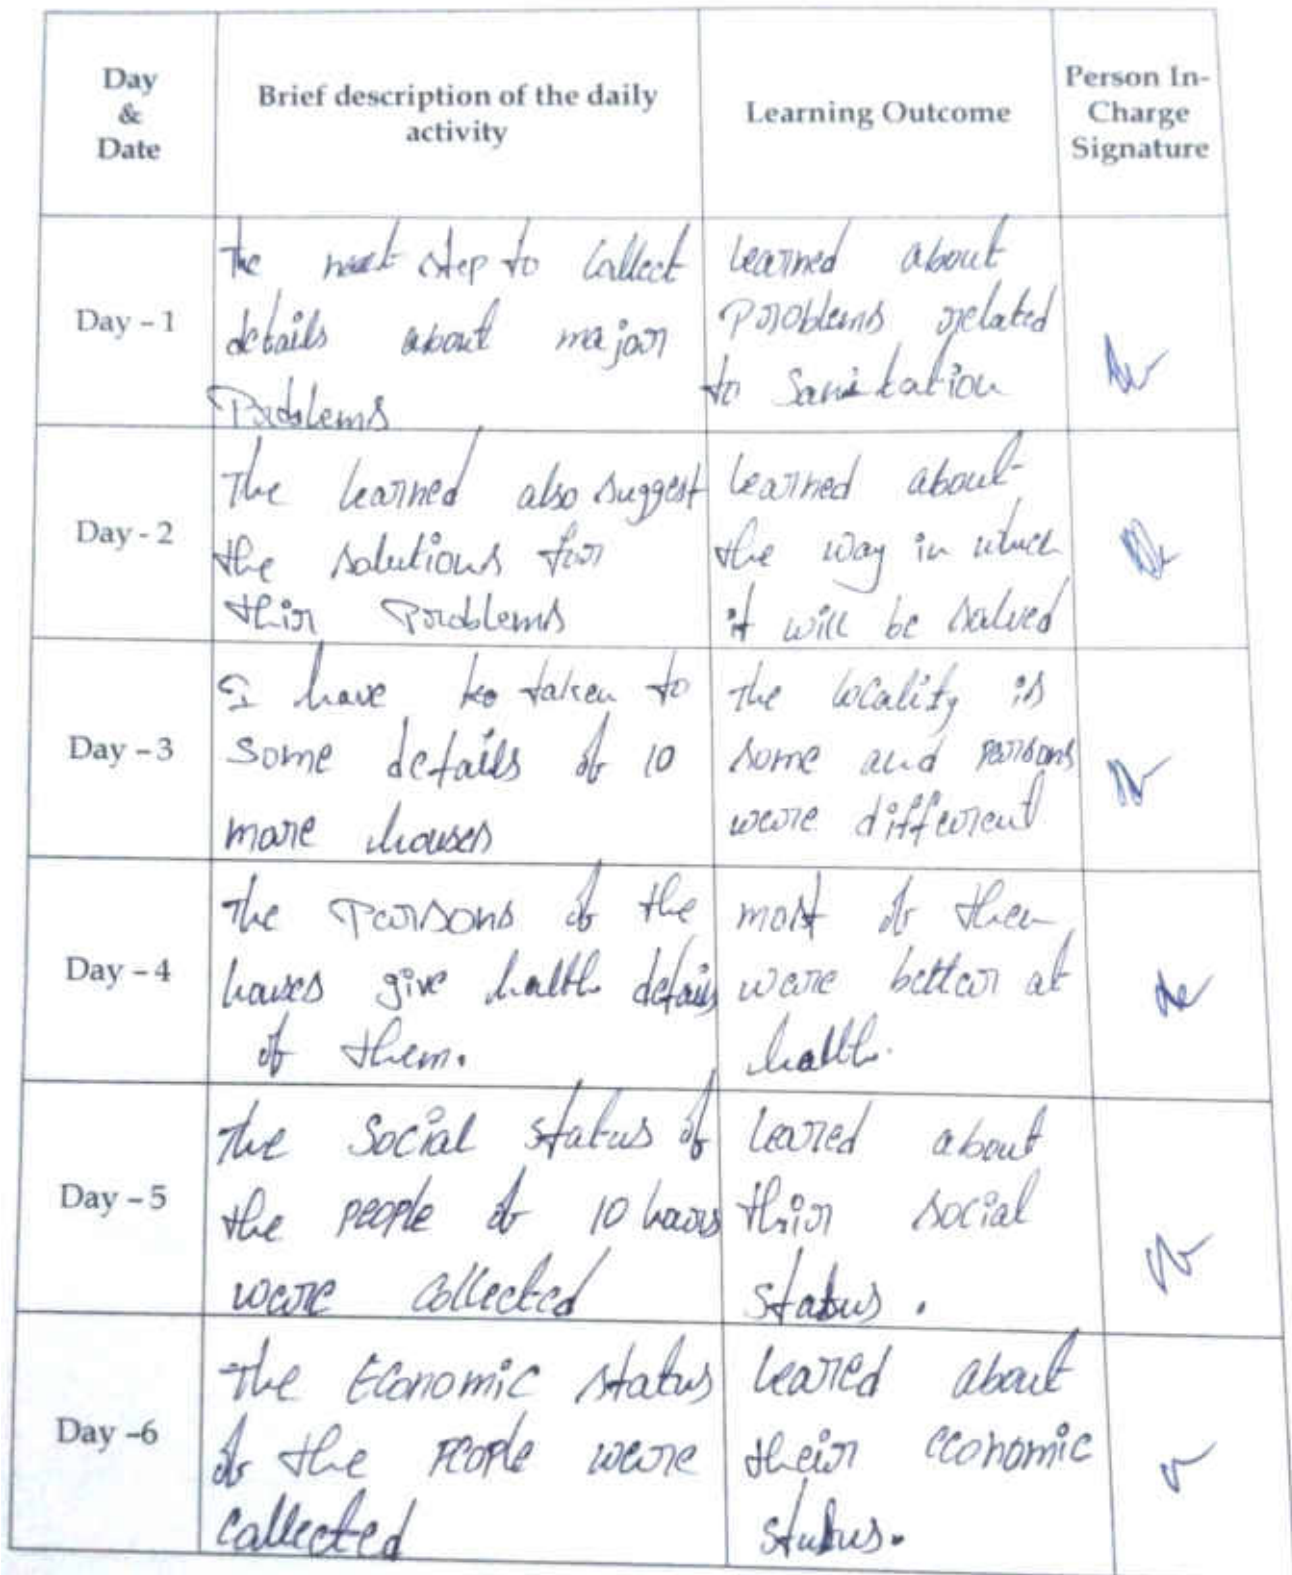 Day
&
Date
Brief description of the daily
activity
Learning Outcome
Person In-
Charge
Signature
Day - 1
The next step to collect
details about major
Problems
learned about
problems related
to Sanitation
Day - 2
The learned also suggest
the solutions for
thir Problems
learned about
the way in which
it will be solved
Day - 3
I have to taken to
some details of 10
more houses
The locality is
some and persons
were different
Day - 4
The Persons of the
houses give health details
of them.
most of them
were better at
health.
Day - 5
The Social status of
the people of 10 hours
were collected
leared about
thir social
status.
Day -6
The Economic status
of the people were
collected
leared about
their economic
status.